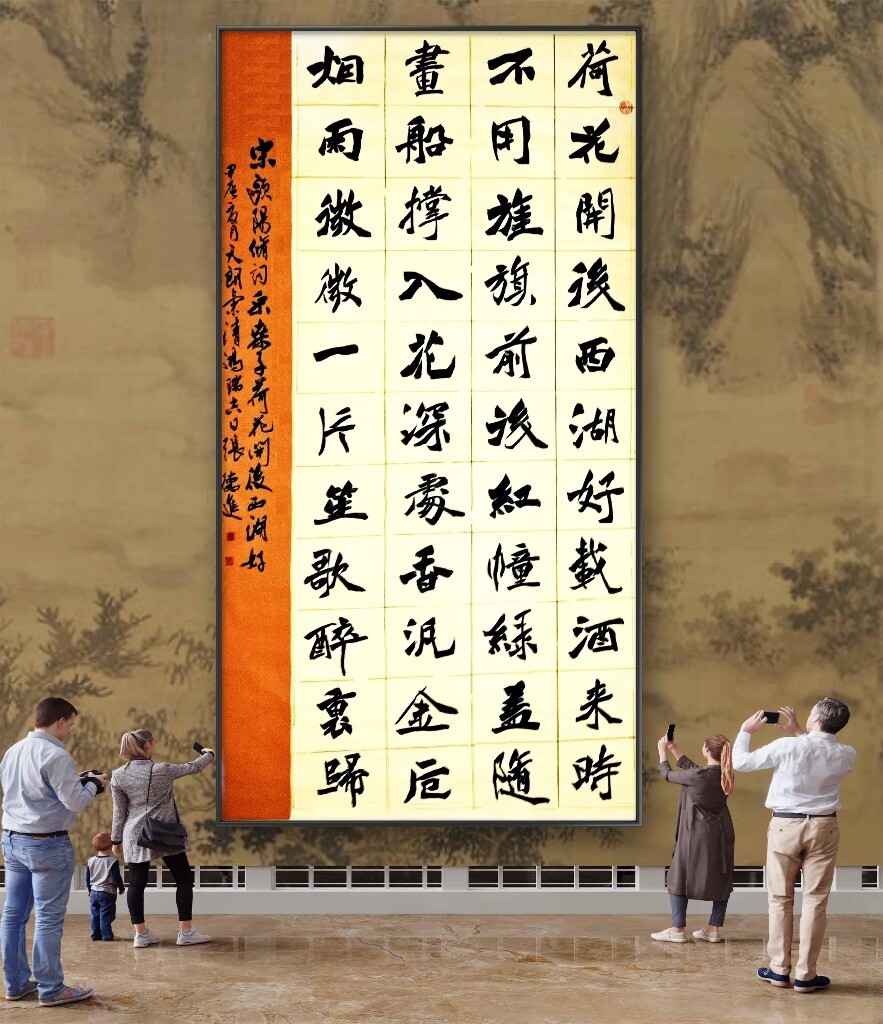 荷花開後西湖好載酒来時
不用旌旗前後紅幢綠盖隨
畫船撑入花深處香汎金卮
烟雨微微一片笙歌醉裏歸
宋歐陽修詞采桑子荷花開後西湖好
甲辰夏月天朗氣清鴻瑞吉日張德進